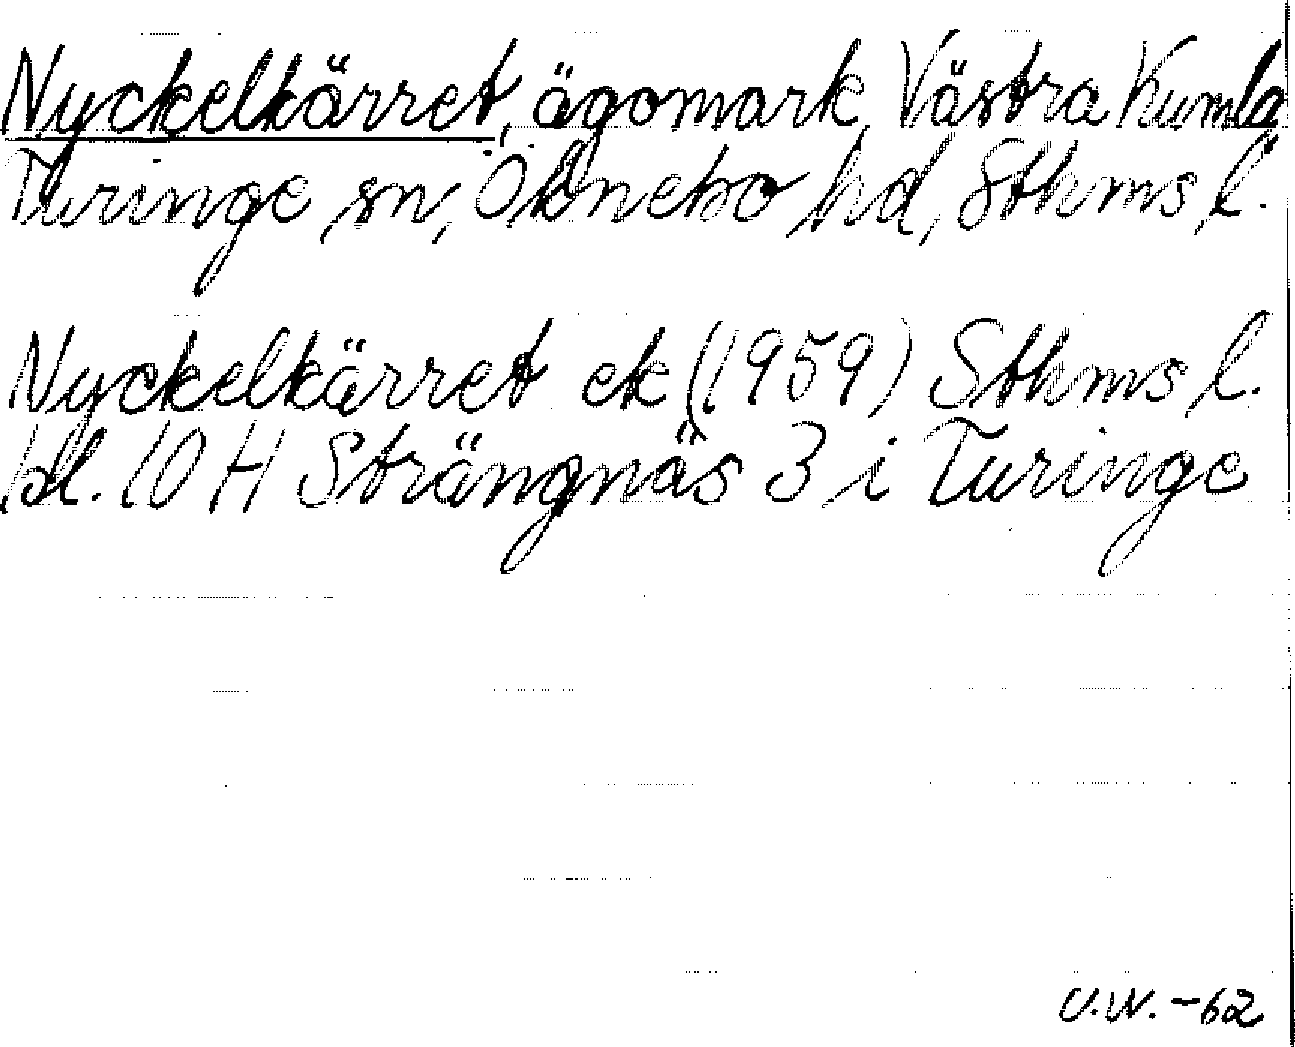 Nyckelkärret, ägomark, Västra Kumla,
Turinge sn, Öknebo hd, Sthms l.
Nyckelkärret ek (1959) Sthms l.
bl. 10 H Strängnäs 3 i Turinge
U.W. -62